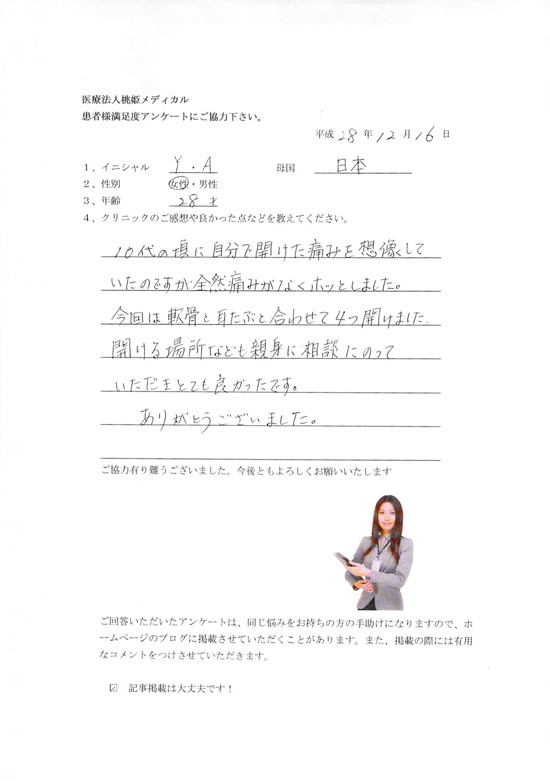 医療法人桃姫メディカル
患者様満足度アンケートにご協力下さい。
平成 28 年 12 月 16 日
1、イニシャル Y . A 母国 日本
2、性別 女性・男性
3、年齢 28 才
4、クリニックのご感想や良かった点などを教えてください。
10代の頃に自分で開けた痛みを想像して
いたのですが全然痛みがなくホッとしました。
今回は軟骨と耳たぶと合わせて4つ開けました。
開ける場所なども親身に相談にのって
いただきとても良かったです。
ありがとうございました。
ご協力有り難うございました。今後ともよろしくお願いいたします
ご回答いただいたアンケートは、同じ悩みをお持ちの方の手助けになりますので、ホ
ームページのブログに掲載させていただくことがあります。また、掲載の際には有用
なコメントをつけさせていただきます。
☑ 記事掲載は大丈夫です！